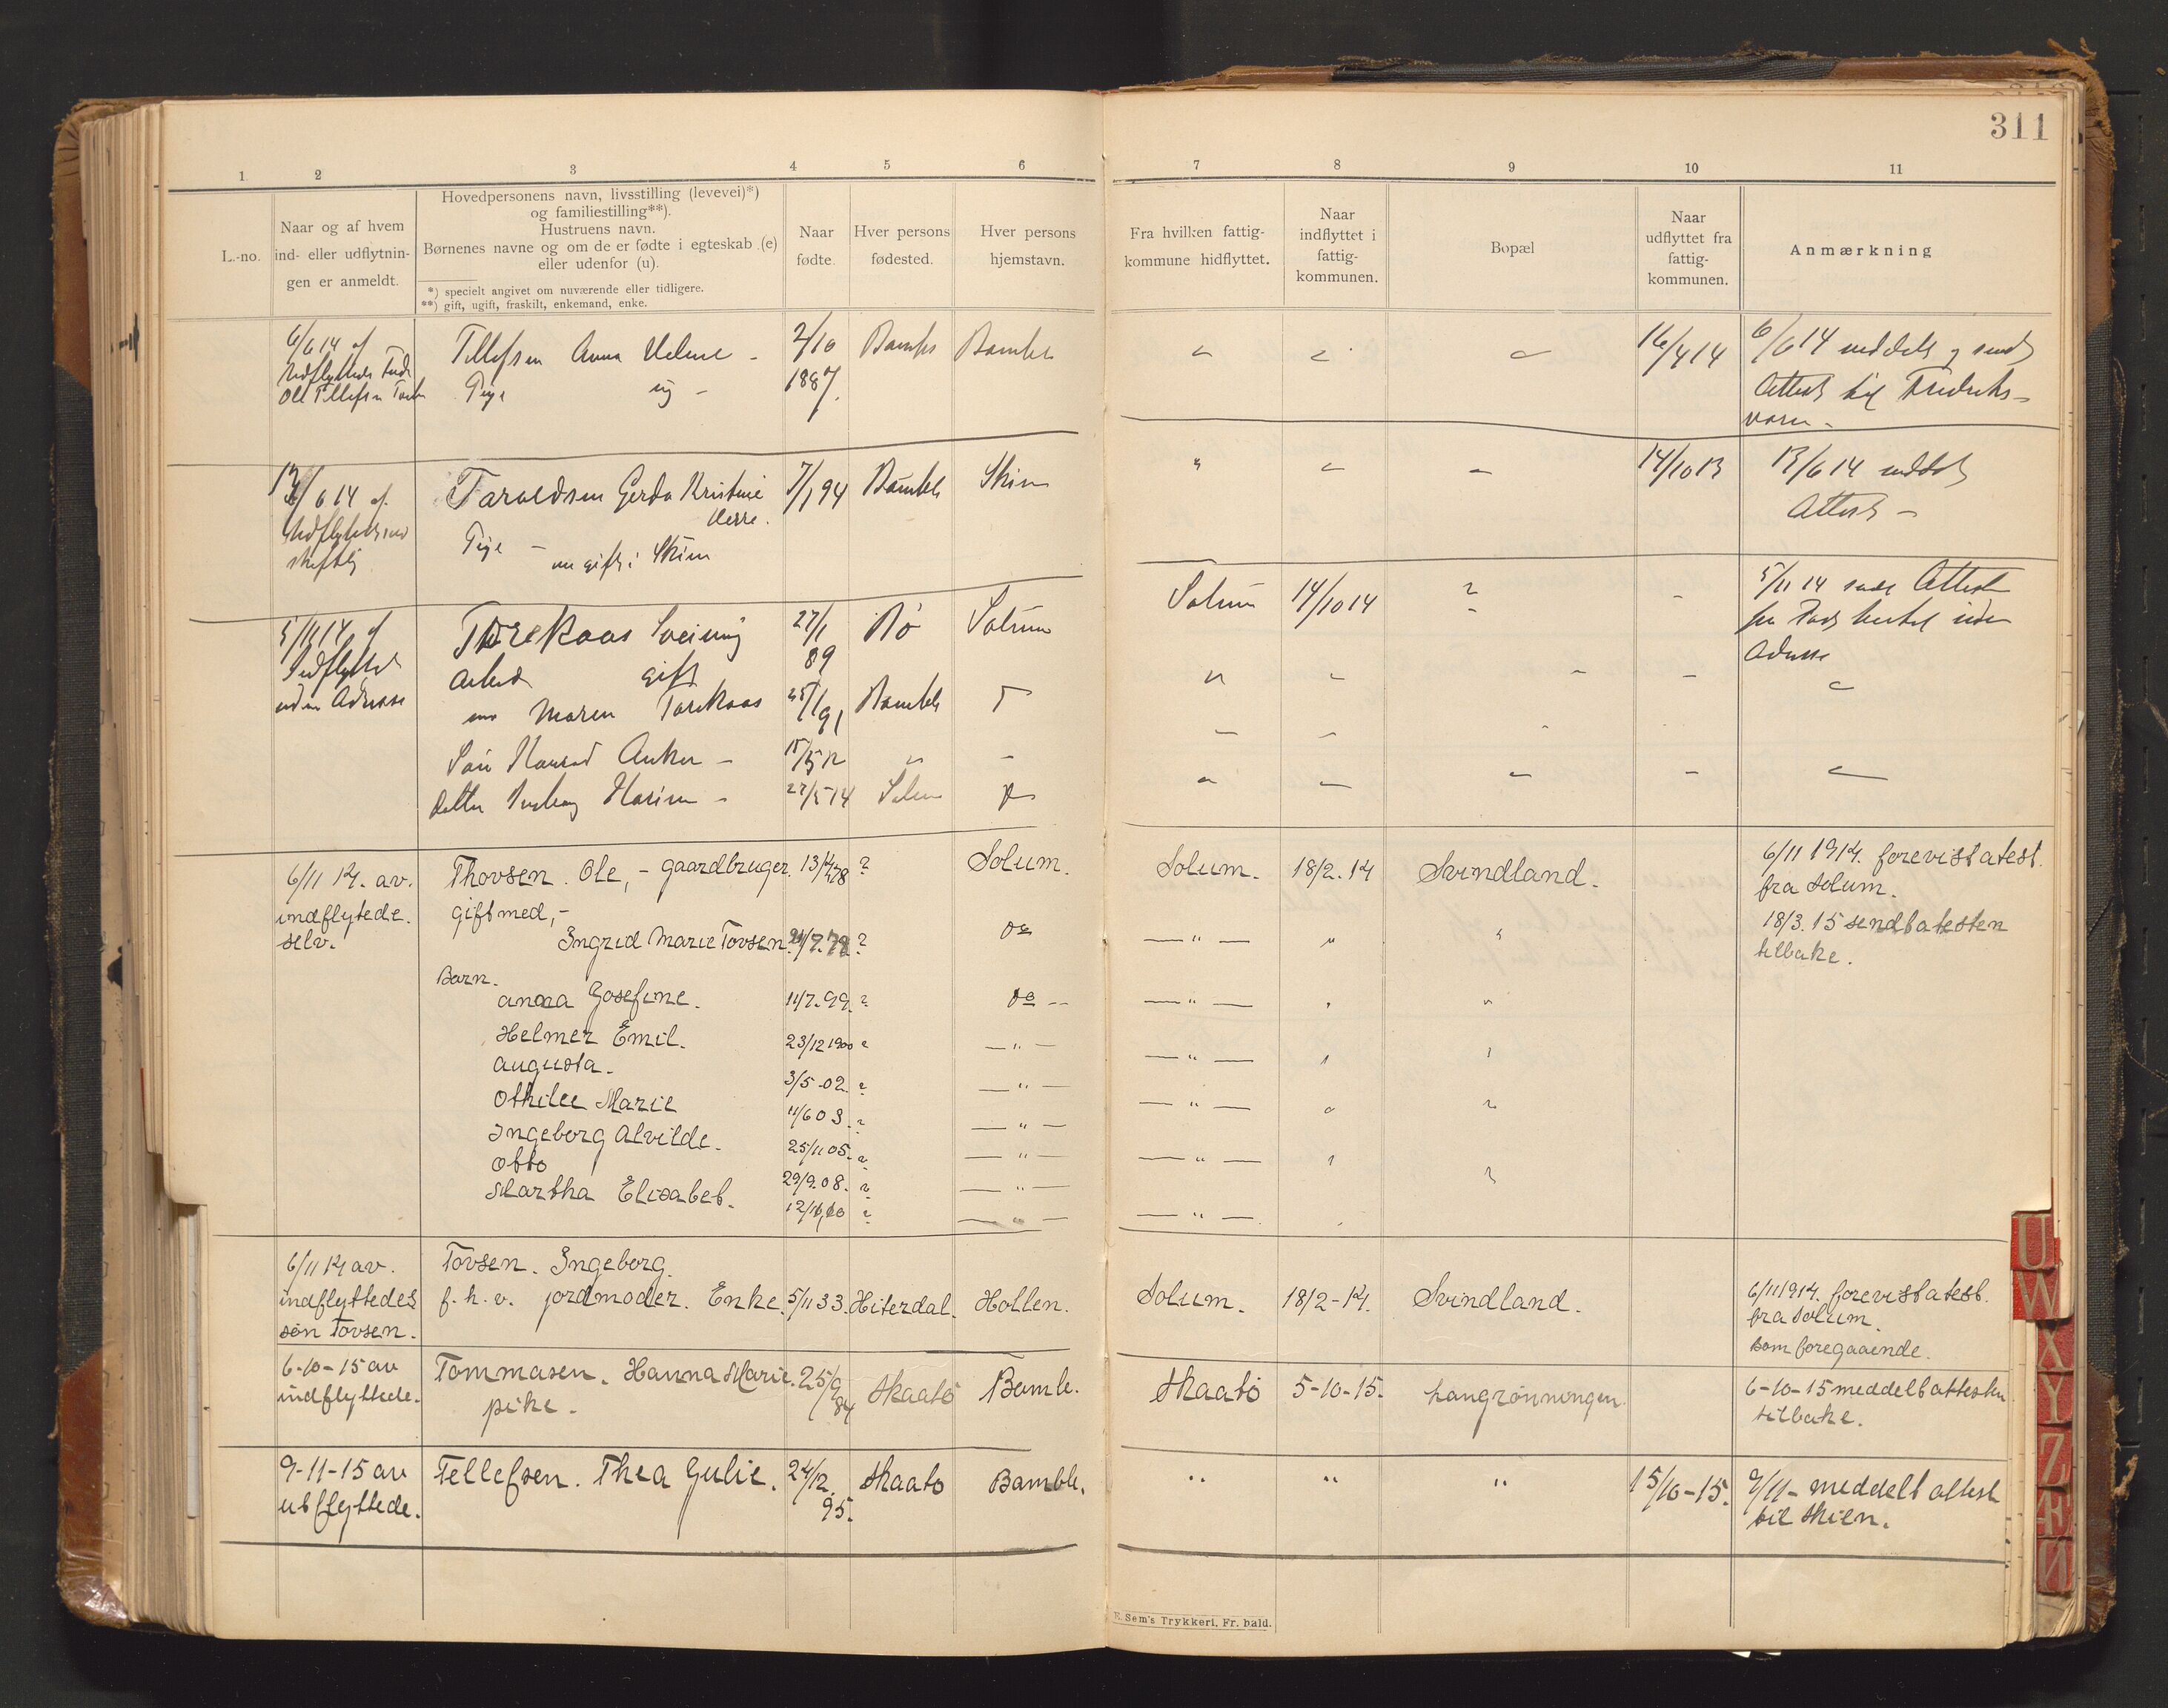 311
1 2 3 4 5 6 7 8 9 10 11
L.-no.
Naar og af hvem
ind- eller udflytnin-
gen er anmeldt.
Hovedpersonens navn, livsstilling (levevei)*)
og familiestilling**).
Hustruens navn.
Børnenes navne og om de er fødte i egteskab (e)
eller udenfor (u).
*) specielt angivet om nuværende eller tidligere.
**) gift, ugift, fraskilt, enkemand, enke.
Naar
fødte.
Hver persons
fødested.
Hver persons
hjemstavn.
Fra hvilken fattig-
kommune hidflyttet.
Naar
indflyttet i
fattig-
kommunen.
Bopæl
Naar
udflyttet fra
fattig-
kommunen.
Anmærkning
6/6 14 af
Ole Tellefsen
Tellefsen Anna - 2/10 Bamble Bamble 16/4 14 6/6 14 meddelt og sendt
Pige ug - 1887. Attest til Fredriks-
værn -
/6 14 af
Taraldsen Gerda Kristine 7/1 94 Bamble Skien 14/10 13 13/6 14 meddelt
Herre. Attest -
Pige - nu gift i Skien
5/11 14 af
Indflytted
uden Adresse
Torekaas 27/1 89 Bø Solum Solum 14/10 14 ? - 5/11 14 Attest
Arbeid gift
Adresse
Maren Torekaas 25/1 91 Bamble
Anker - 15/5 12 "
Datter - 27/5 14 Solum
6/11 14. av.
indflytede.
selv.
Thovsen. Ole, - gaardbruger. 13/4 78 ? Solum. Solum. 18/2. 14 Svindland. 6/11 1914. forevist atest.
fra Solum.
gift med, -
Ingrid Marie Tovsen. /7. 78 ? do — " — " " 18/3. 15 sendt atesten
tilbake.
Barn.
anna Josefine. 11/7. 99. ? do -- — " —
Helmer Emil. 23/12 1900 ? — " — — " —
augusta. 3/5-02. ? — " — — " —
Othilee Marie 11/6 03. ? — " — — " —
Ingeborg Alvilde. 25/11 05. ? — " — — " —
Otto 29/9. 08. ? — " —
Martha Elisabet. 12/10,10 ? — " —
6/11 14 av.
indflyttedes
søn Tovsen.
Tovsen. Ingeborg.
f. h. v. jordmoder. Enke. 5/11 33. Hiterdal. Hollen. Solum. 18/2-14. Svindland. 6/11 1914. forevist atest.
fra Solum.
som foregaaende.
6-10-15 av
indflyttede.
Tommasen. Hanna Marie. 25/9 84 Skaatö Bamble. Skaatö 5-10-15. Langrönningen. 6-10-15 meddelt attesten
tilbake.
pike.
9-11-15 av
utflyttede.
Tellefsen. Thea Gulie. 24/12. 95. Skaatö Bamble. " " " 15/10-15. 9/11- meddelt attest
til Skien.
E. Sem's Trykkeri, Fr. hald.
U
W
X
Y
Z
Æ
Ø